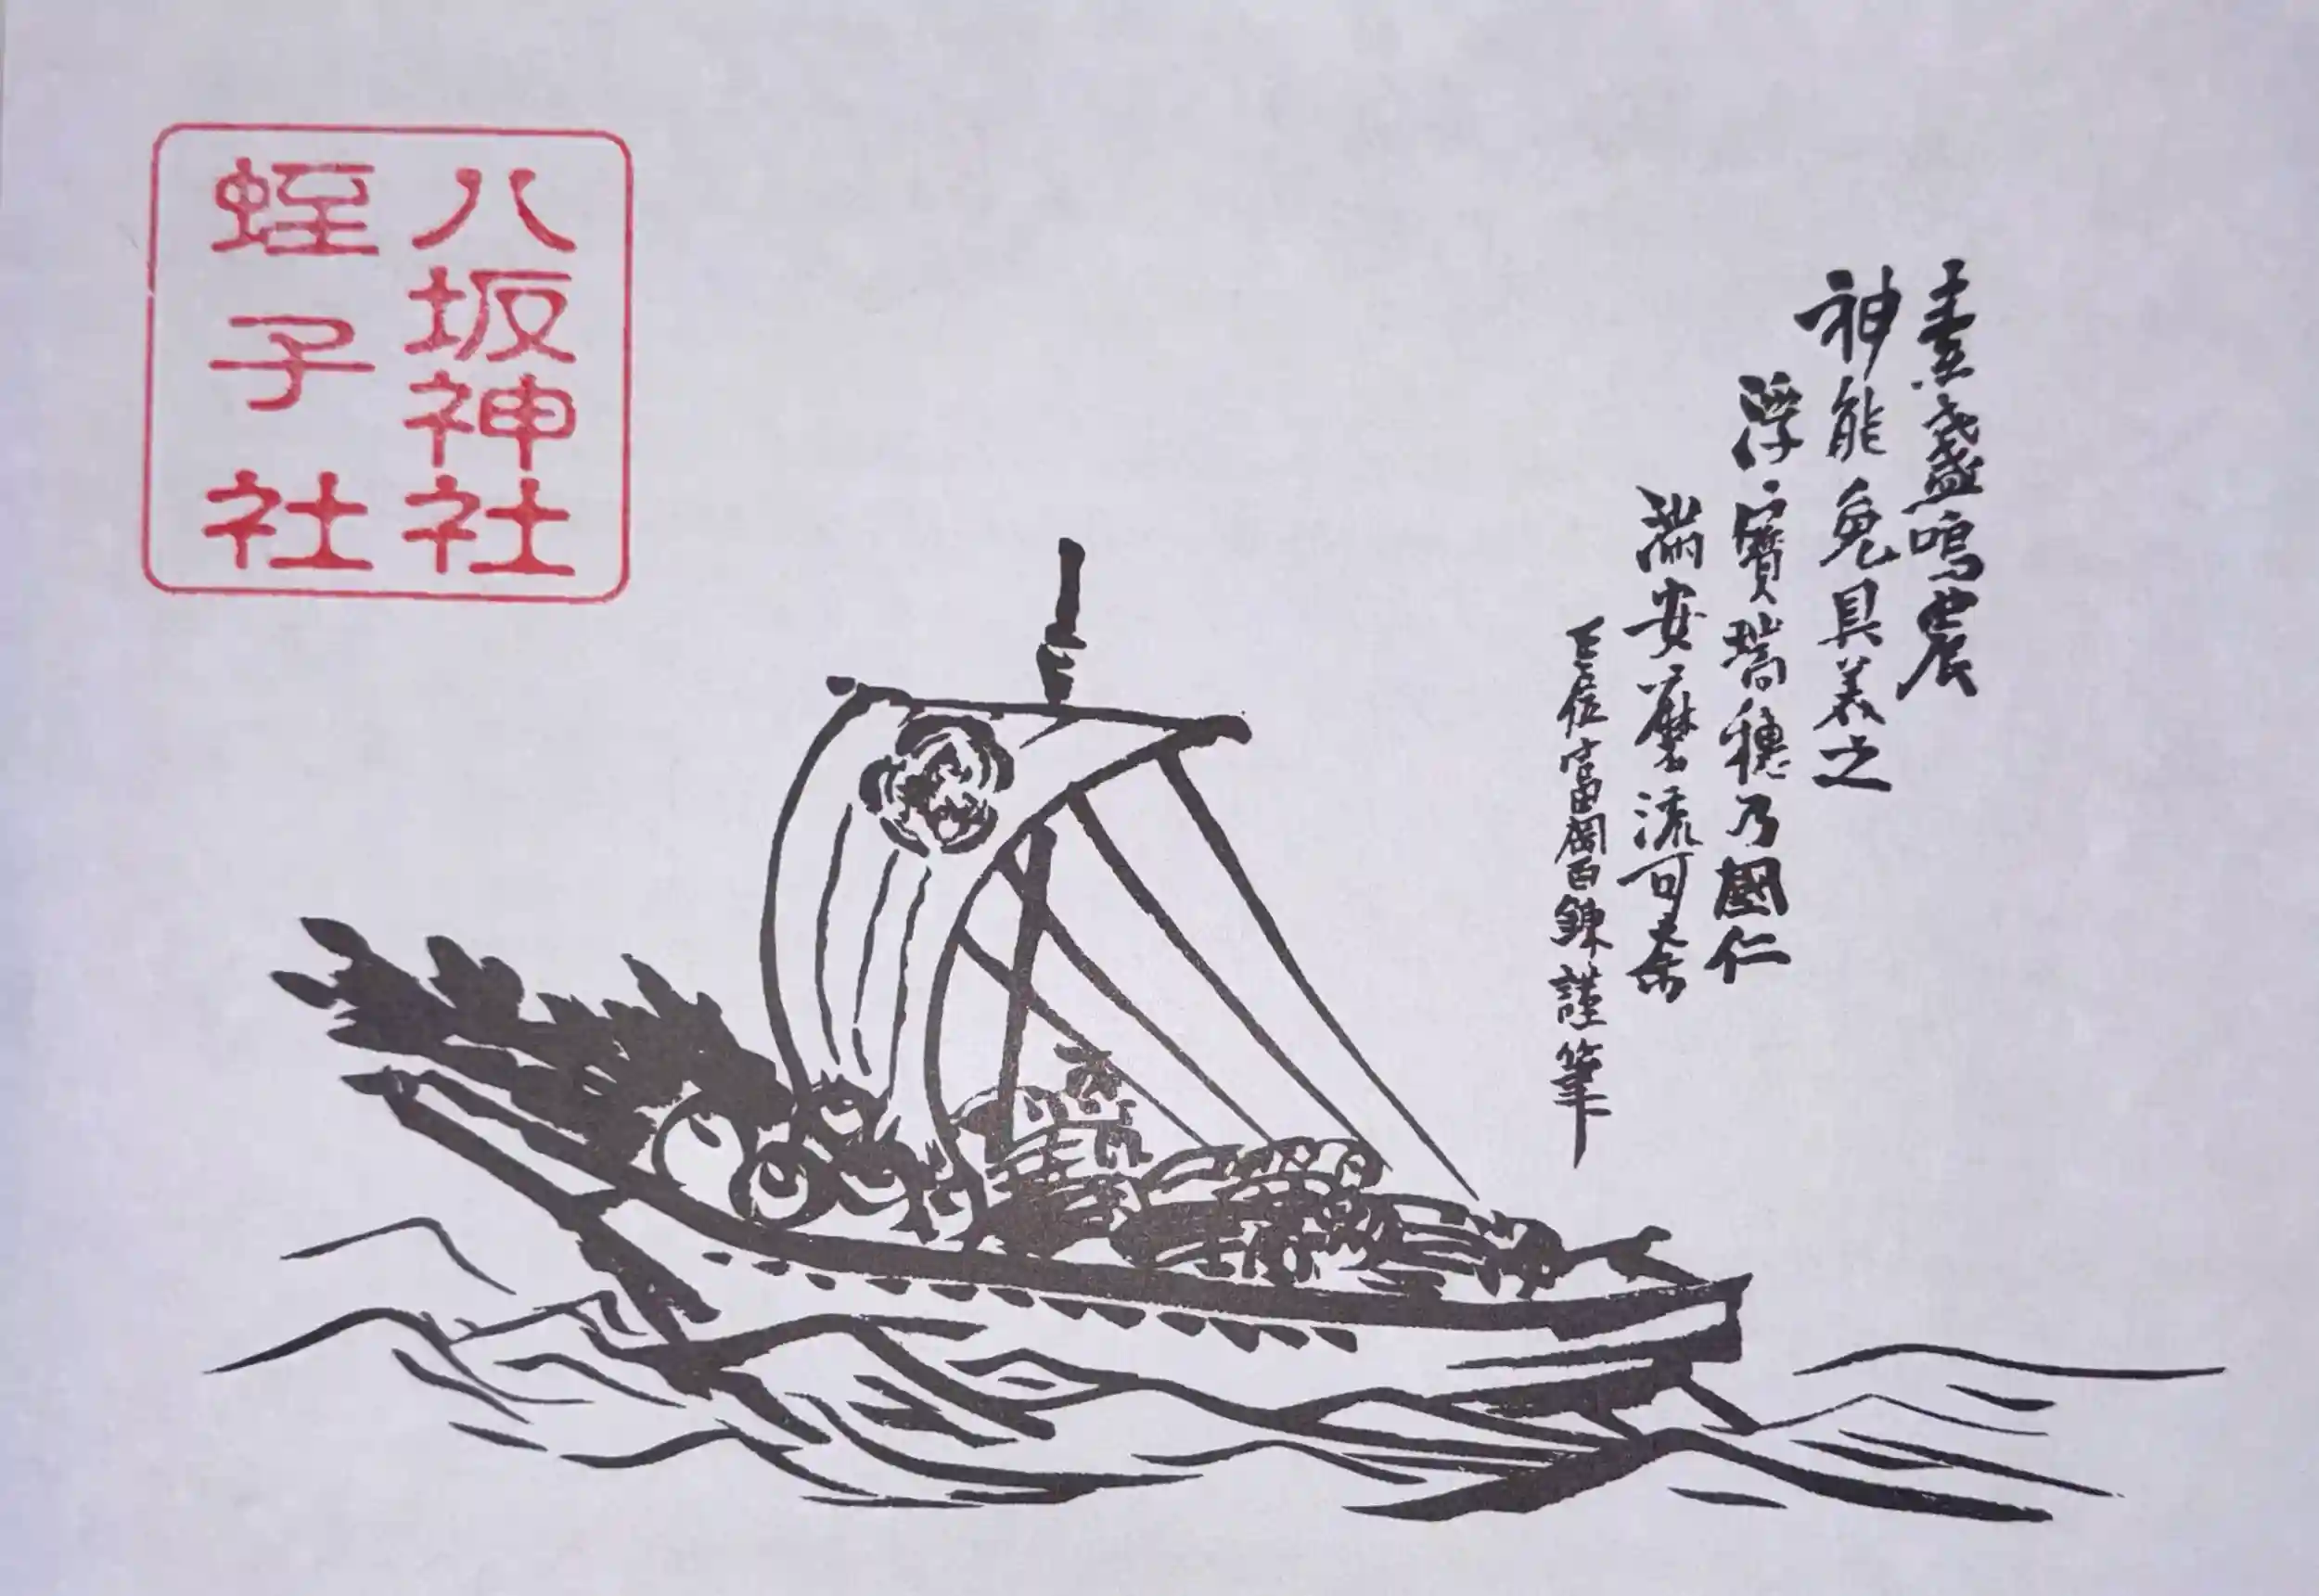 八坂神社
蛭子社
素盞嗚農
神能免具美之
浮寶瑞穂乃國仁
満安麼流可奈
正位富岡百錬謹筆